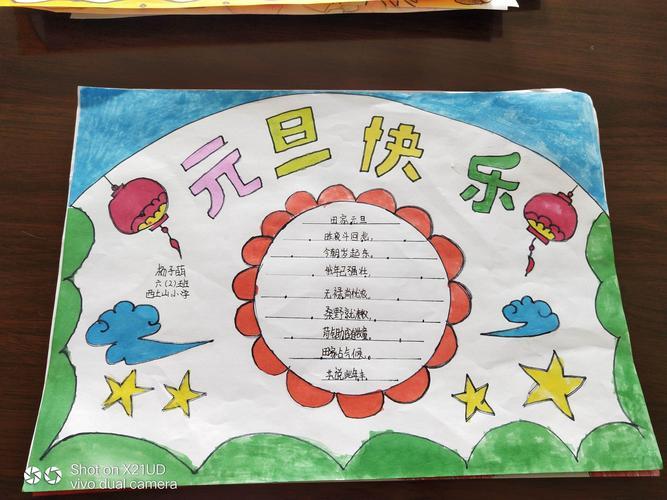 元旦快乐
田家元旦
昨夜斗回北,
今朝岁起东。
我年已强壮,
无禄尚忧农。
桑野就耕
荷锄随牧童。
田家占气候。
共说此年丰。
六(2)班
西土山小学
Shot on X21UD
vivo dual camera